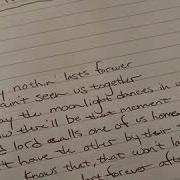 y nothin lasts forever
ain't seen us together
ay the moonlight dances in y
ow there'll be that moment
d lord calls one of us home
't have the other by their
knows that, that won't la
last forever aft